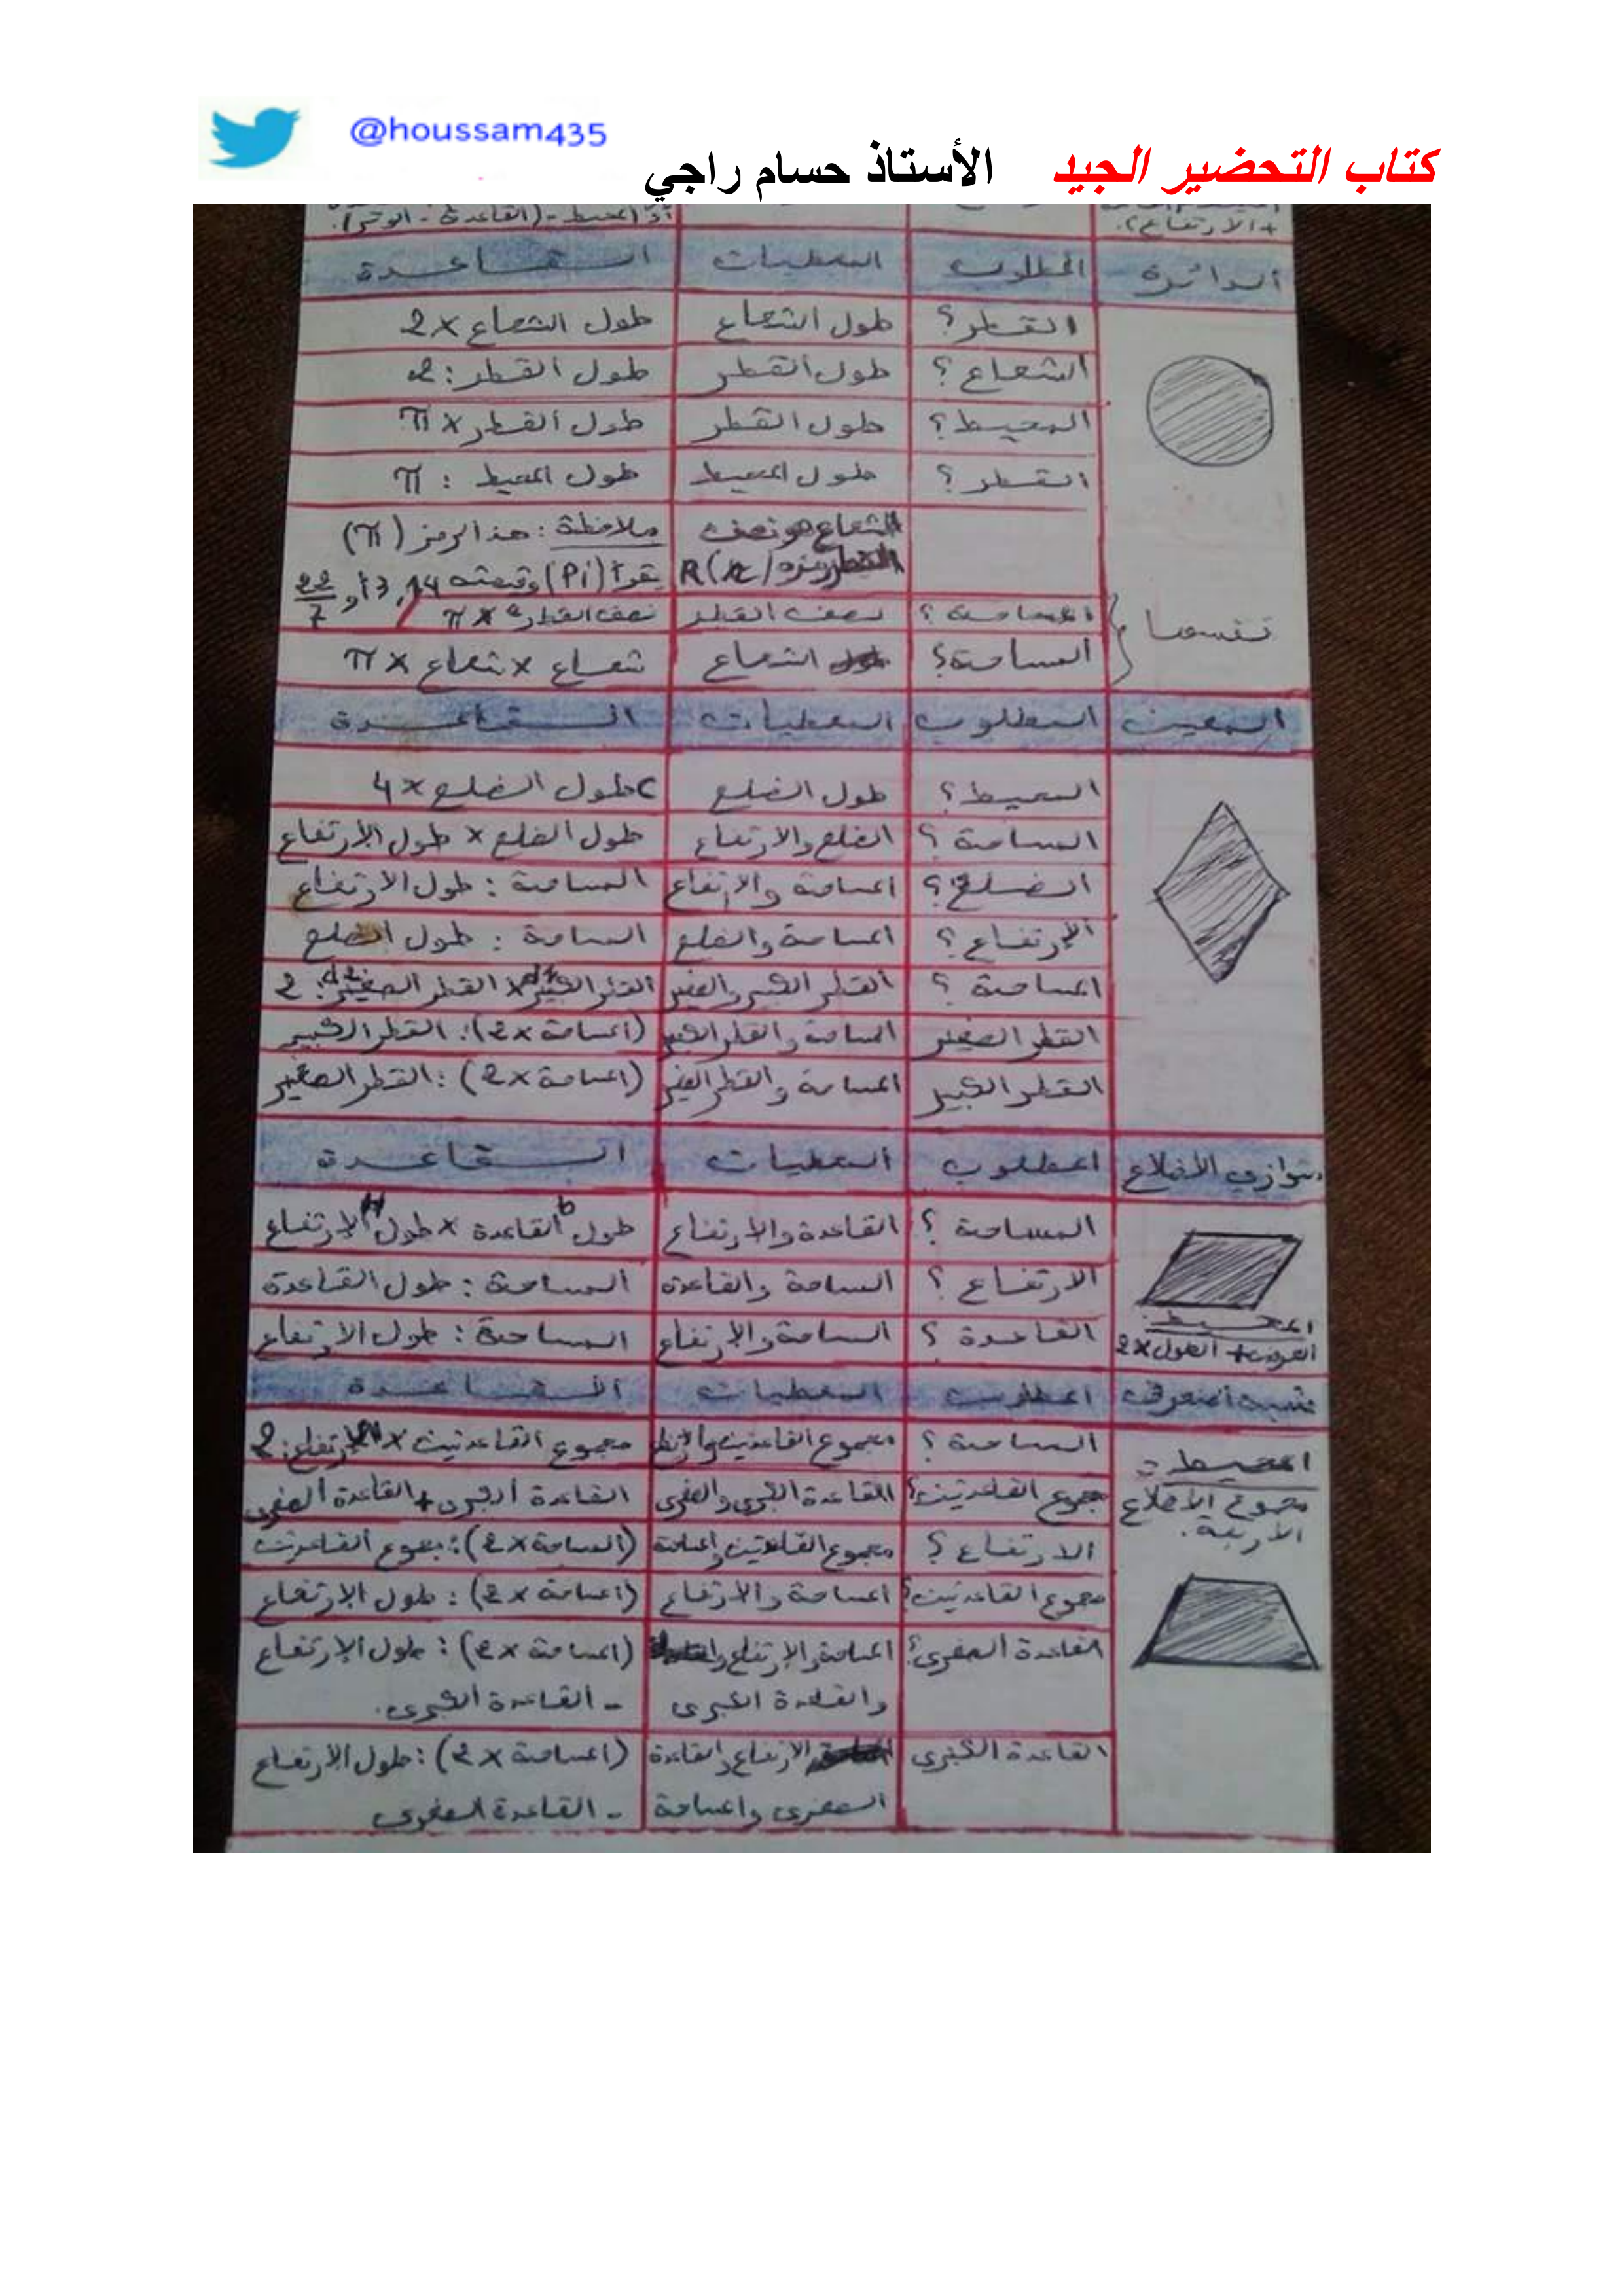 @houssam435
كتاب التحضير الجيد الأستاذ حسام راجي
+الارتفاع). أو (المحيط - (القاعدة - الوتر).
الدائرة المطلوب المعطيات القاعدة
القطر؟ طول الشعاع طول الشعاع × 2
الشعاع؟ طول القطر طول القطر : 2
المحيط؟ طول القطر طول القطر × π
القطر؟ طول المحيط طول المحيط : π
الشعاع هو نصف ملاحظة : هذا الرمز (π)
القطر رمزه R(r) يقرأ (Pi) وقيمته 3,14 أو 22/7
المساحة؟ نصف القطر نصف القطر² × π
نفسها
المساحة؟ الشعاع شعاع × شعاع × π
المعين المطلوب المعطيات القاعدة
المحيط؟ طول الضلع طول الضلع × 4
المساحة؟ الضلع والارتفاع طول الضلع × طول الارتفاع
الضلع؟ المساحة والارتفاع المساحة : طول الارتفاع
الإرتفاع؟ المساحة والضلع المساحة : طول الضلع
المساحة؟ القطر الكبير والصغير القطر الكبير × القطر الصغير : 2
القطر الصغير المساحة والقطر الكبير (المساحة × 2) : القطر الكبير
القطر الكبير المساحة والقطر الصغير (المساحة × 2) : القطر الصغير
متوازي الأضلاع المطلوب المعطيات القاعدة
المساحة؟ القاعدة والارتفاع طول القاعدة b × طول الارتفاع H
الارتفاع؟ المساحة والقاعدة المساحة : طول القاعدة
المحيط:
القاعدة؟ المساحة والارتفاع المساحة : طول الارتفاع
العرض + الطول × 2
شبه المنحرف المطلوب المعطيات القاعدة
المساحة؟ مجموع القاعدتين والارتفاع مجموع القاعدتين × الارتفاع : 2
المحيط =
مجموع الأضلاع
الأربعة.
مجموع القاعدتين؟ القاعدة الكبرى والصغرى القاعدة الكبرى + القاعدة الصغرى
الارتفاع؟ مجموع القاعدتين والمساحة (المساحة × 2) : مجموع القاعدتين
مجموع القاعدتين؟ المساحة والارتفاع (المساحة × 2) : طول الارتفاع
القاعدة الصغرى؟ المساحة والارتفاع (المساحة × 2) : طول الإرتفاع
والقاعدة الكبرى - القاعدة الكبرى.
القاعدة الكبرى الارتفاع والقاعدة (المساحة × 2) : طول الارتفاع
الصغرى والمساحة - القاعدة الصغرى